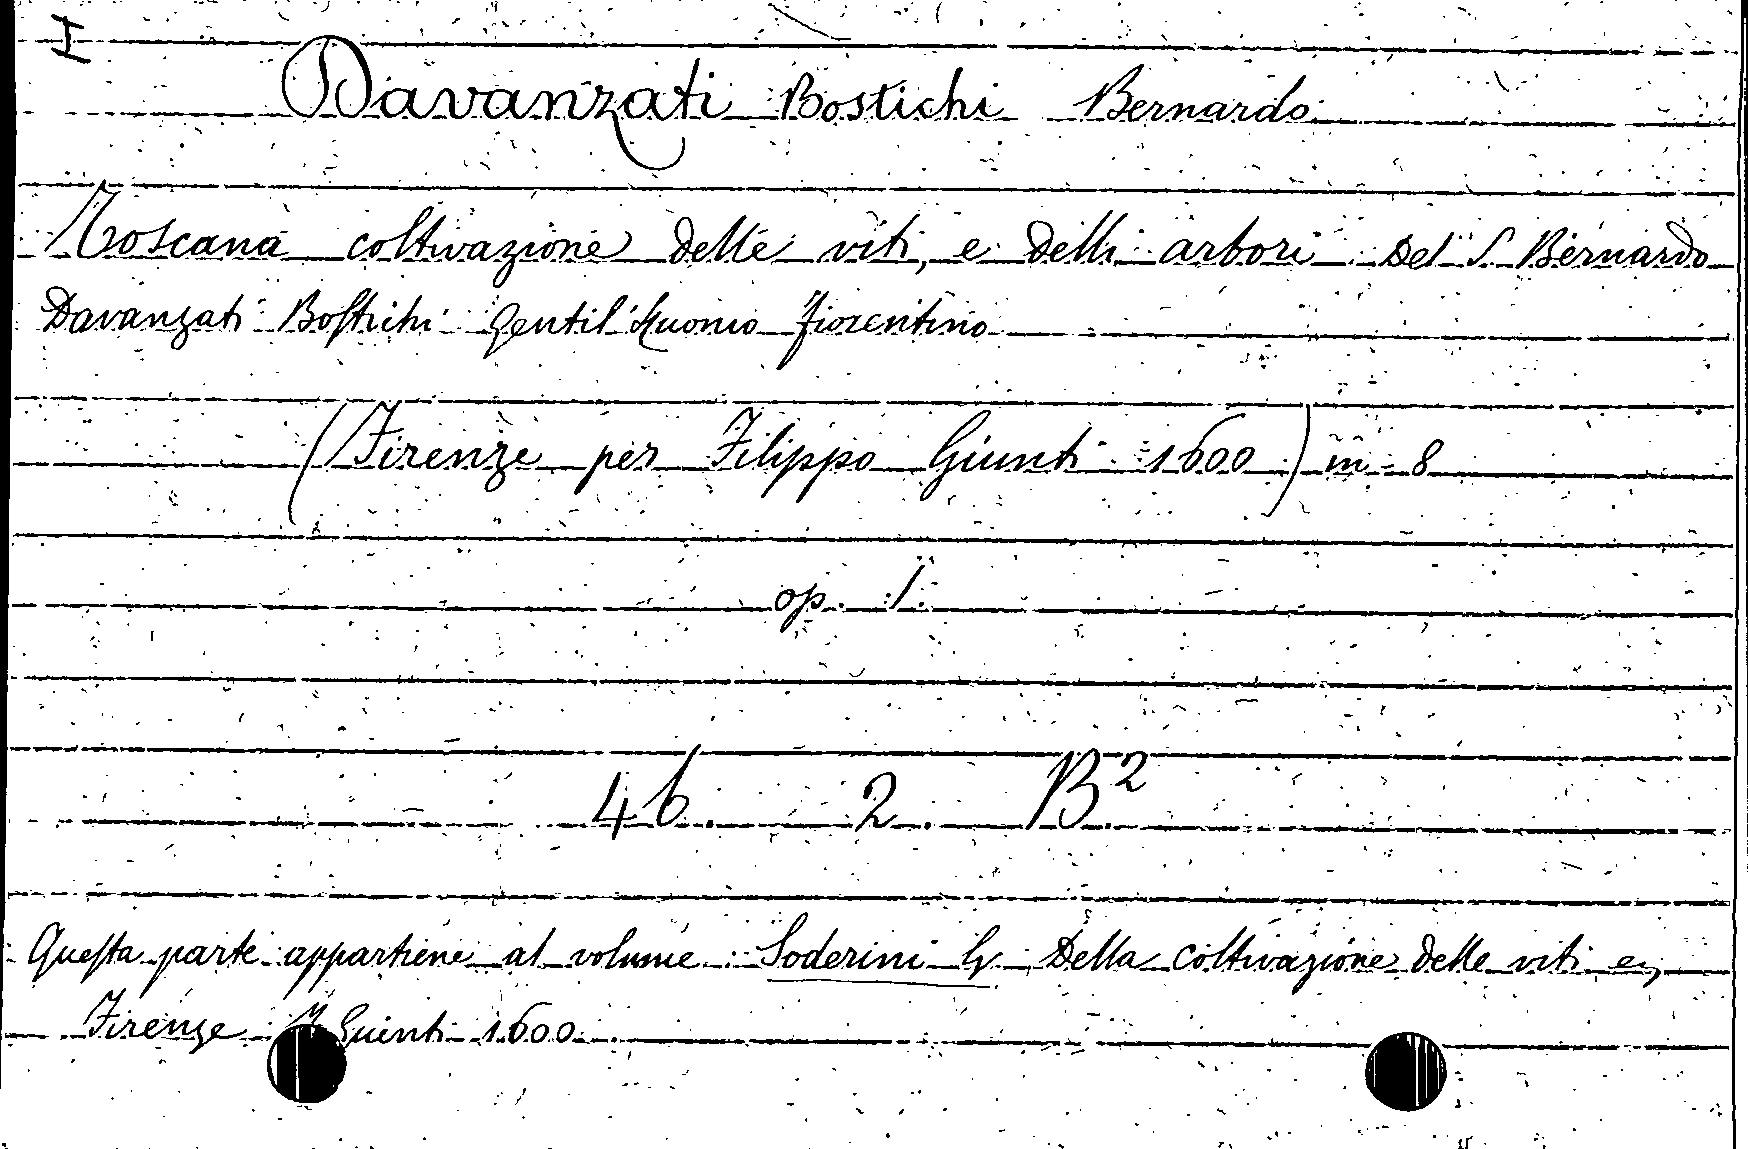 I
Davanzati Bostichi Bernardo
Toscana coltivazione delle viti, e delli arbori Del S. Bernardo
Davanzati Bostichi gentil'huomo fiorentino
(Firenze per Filippo Giunti 1600) in-8
op. 1.
46. 2. B.2
Questa parte appartiene al volume Soderini G. Della coltivazione delle viti ec,
Firenze Giunti 1600